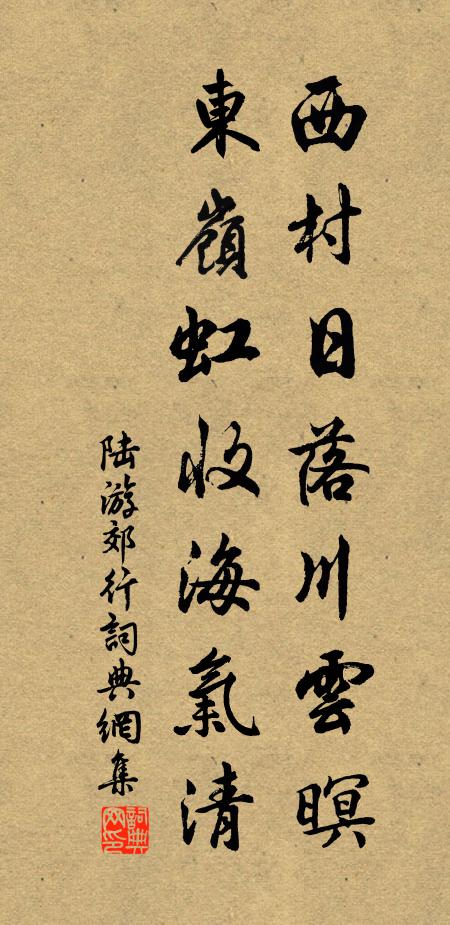 西村日落川雲暝
東嶺虹收海氣清
陆游郊行詞典網集
詞典网印